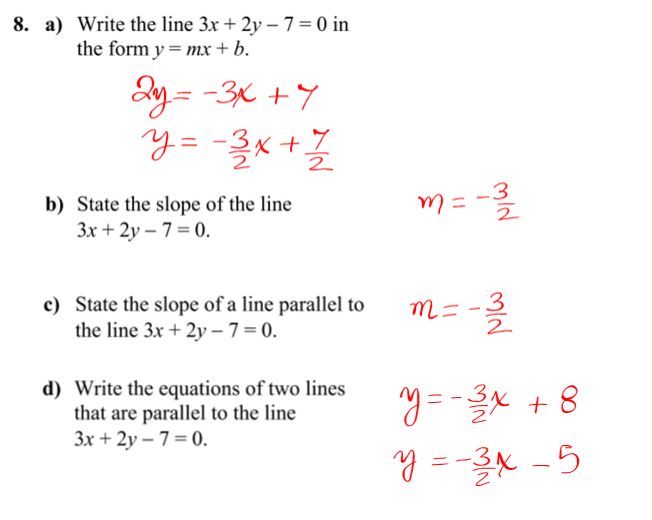 8. a) Write the line 3x + 2y – 7 = 0 in
the form y = mx + b.
2y = -3x + 7
y = -3/2 x + 7/2
b) State the slope of the line
3x + 2y – 7 = 0.
m = -3/2
c) State the slope of a line parallel to
the line 3x + 2y – 7 = 0.
m = -3/2
d) Write the equations of two lines
that are parallel to the line
3x + 2y – 7 = 0.
y = -3/2 x + 8
y = -3/2 x - 5